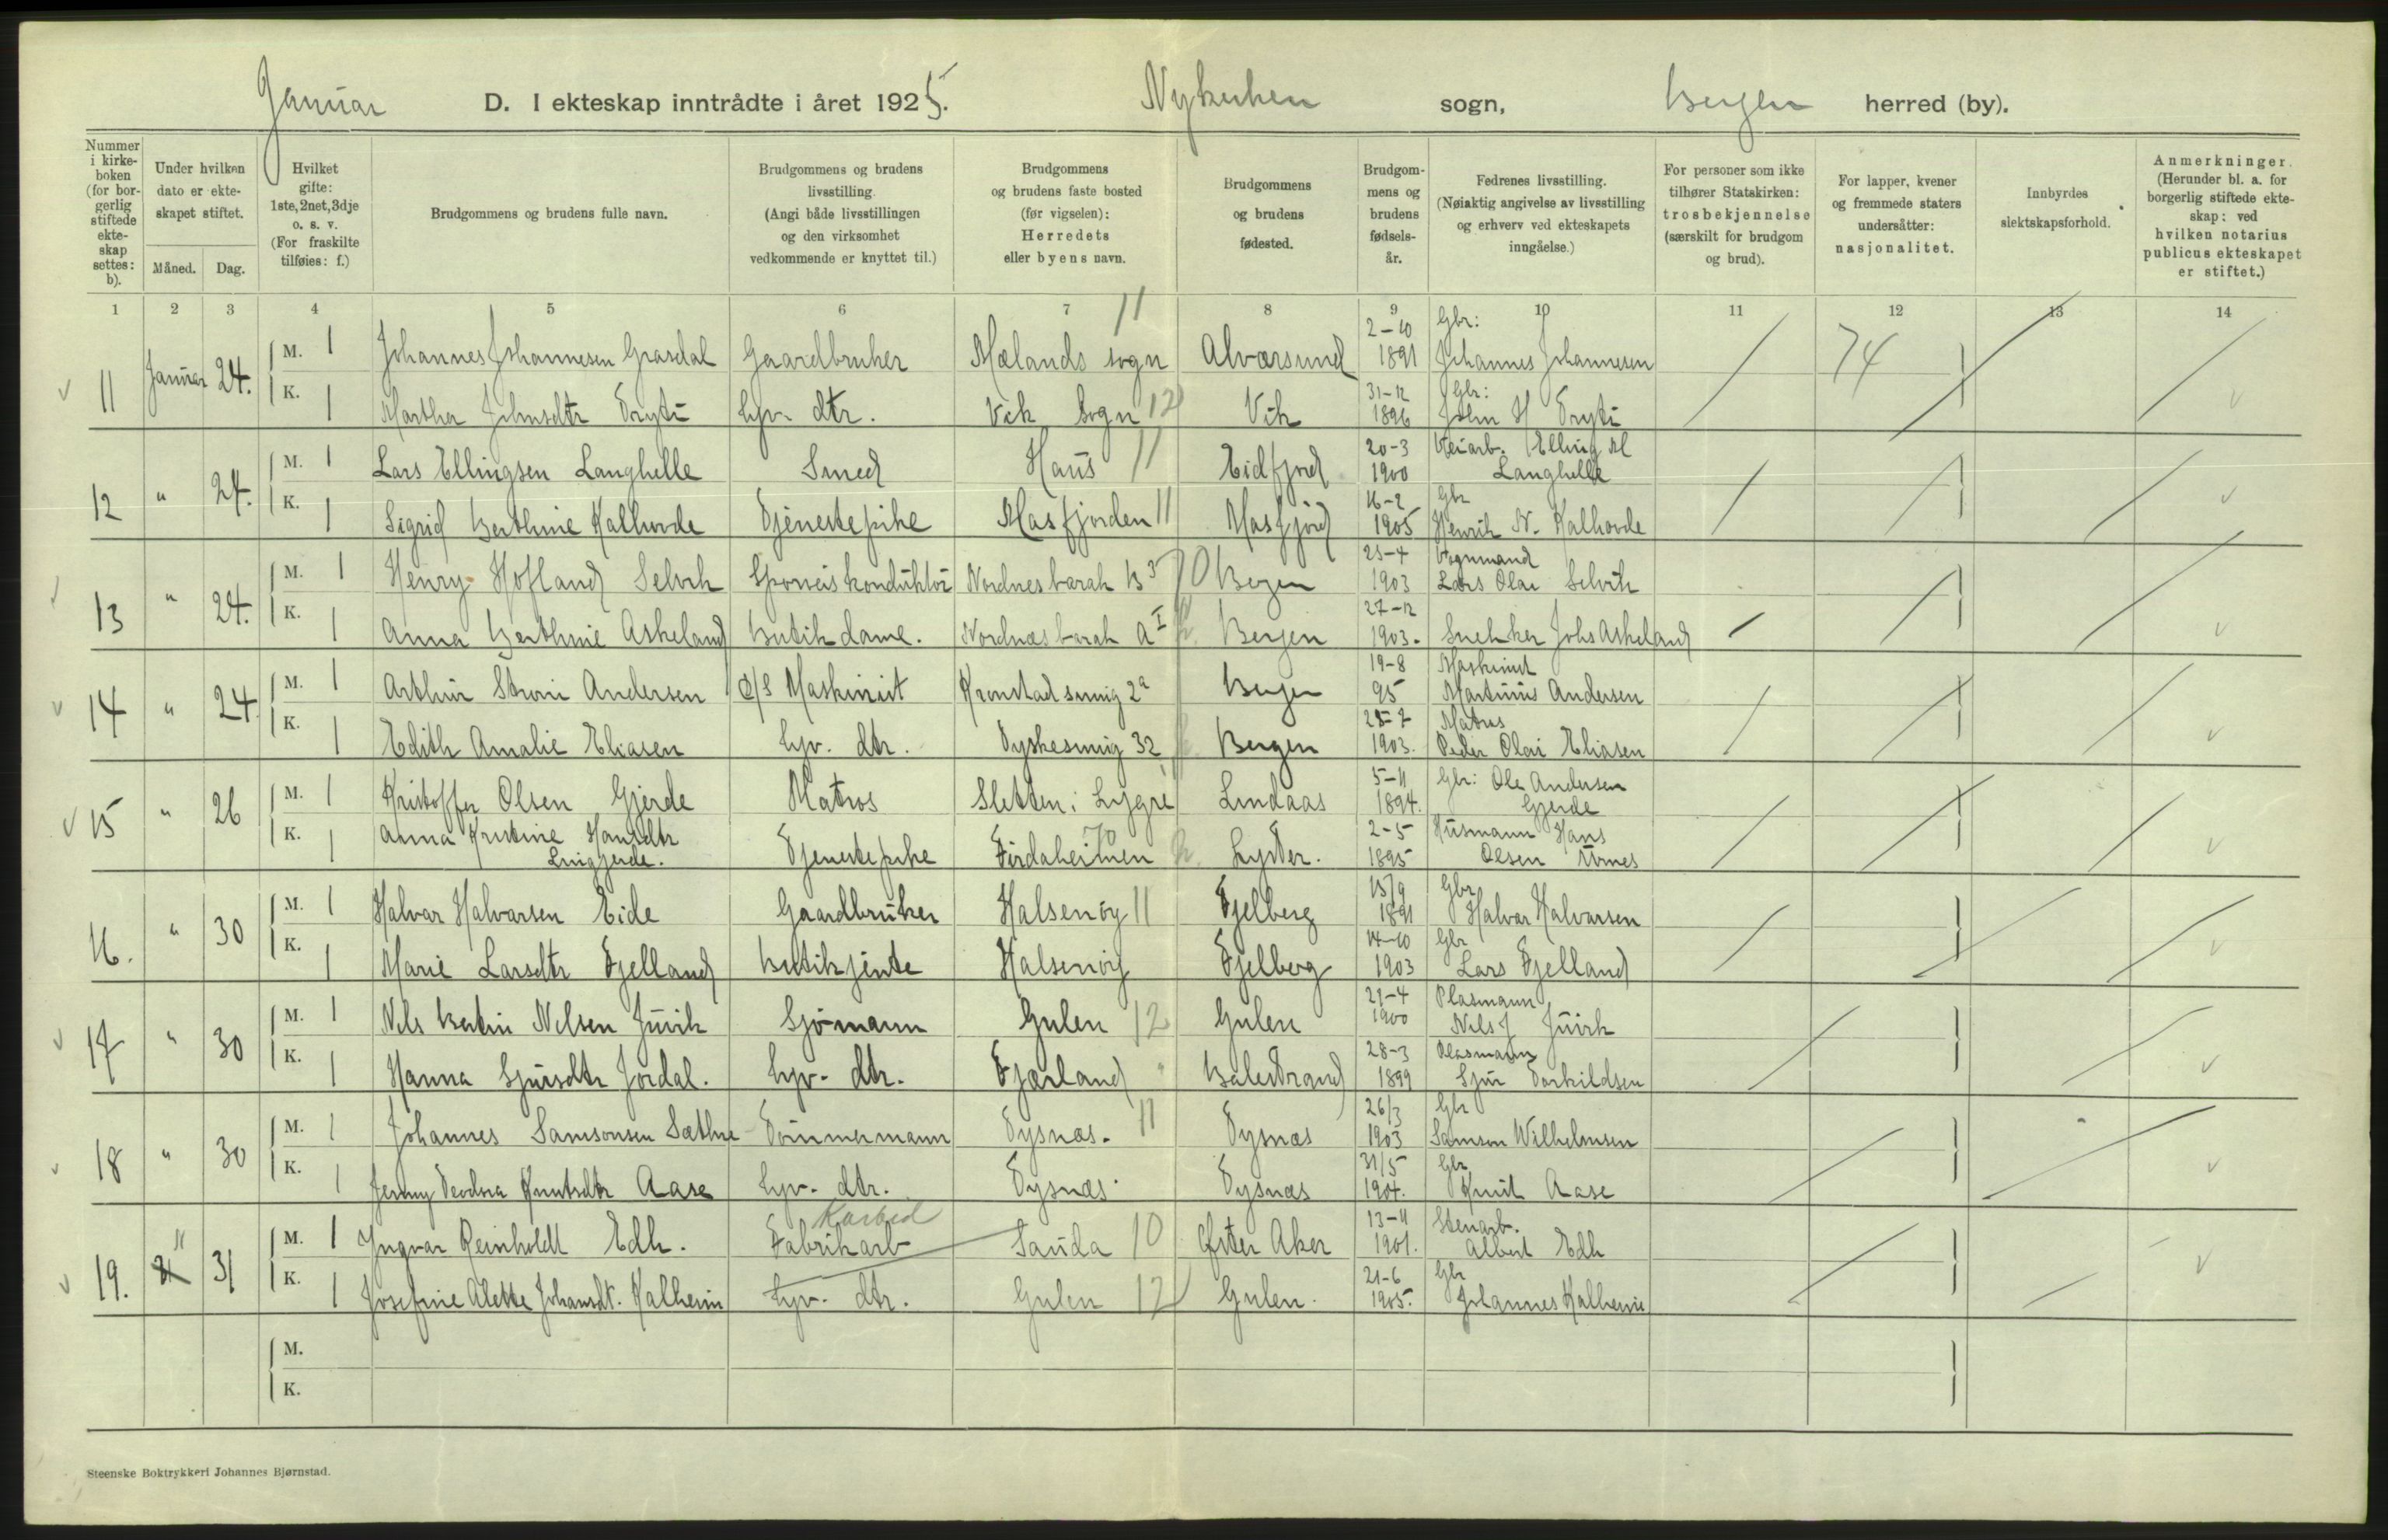 Januar D. I ekteskap inntrådte i året 1925. Nykirken sogn, Bergen herred (by).
Nummer i kirke-boken (for bor-gerlig stiftede ekte-skap settes: b).
Under hvilken dato er ekte-skapet stiftet.
Måned. Dag.
Hvilket gifte: 1ste, 2net, 3dje o. s. v. (For fraskilte tilføies: f.)
Brudgommens og brudens fulle navn.
Brudgommens og brudens livsstilling. (Angi både livsstillingen og den virksomhet vedkommende er knyttet til.)
Brudgommens og brudens faste bosted (før vigselen): Herredets eller byens navn.
Brudgommens og brudens fødested.
Brudgom-mens og brudens fødsels-år.
Fedrenes livsstilling. (Nøiaktig angivelse av livsstilling og erhverv ved ekteskapets inngåelse.)
For personer som ikke tilhører Statskirken: trosbekjennelse (særskilt for brudgom og brud).
For lapper, kvener og fremmede staters undersåtter: nasjonalitet.
Innbyrdes slektskapsforhold.
Anmerkninger. (Herunder bl. a. for borgerlig stiftede ekte-skap: ved hvilken notarius publicus ekteskapet er stiftet.)
1 2 3 4 5 6 7 8 9 10 11 12 13 14
11 Januar 24. M. 1 Johannes Johannesen Grasdal Gaardbruker Mælands sogn 11 Alværsund 2-10 1891 Gbr: Johannes Johannesen 74
K. 1 Martha Johnsdtr Tryti hjv. dtr. Vik Sogn 12 Vik 31-12 1896 Gbr: John H Tryti
12 " 24. M. 1 Lars Ellingsen Langhelle Smed Haus 11 Eidfjord 20-3 1900 Veiarb. Elling M Langhelle
K. 1 Sigrid Berthine Kalhovde Tjenestepike Masfjorden 11 Masfjord 16-2 1905 Gbr Henrik N. Kalhovde
13 " 24. M. 1 Henry Hofland Selvik Sporveiskonduktör Nordnesbarak B 3 70 Bergen 25-4 1903 Vognmand Lars Olai Selvik
K. 1 Anna Berthine Askeland Butikdame. Nordnæsbarak A I Bergen 27-12 1903. Snekker Johs Askeland
14 " 24. M. 1 Arthur Strøm Andersen d/s Maskinist Kronstadsmug 2a Bergen 19-8 95 Maskinist Martinus Andersen
K. 1 Edith Amalie Eliasen hjv. dtr. Tyskesmug 32 Bergen 25-7 1903. Matros Peder Olai Eliasen
15 " 26 M. 1 Kristoffer Olsen Gjerde Matros Sletten i Lygre Lindaas 5-11 1894. Gbr: Ole Andersen Gjerde
K. 1 Anna Kristine Hansdtr Lingjerde. Tjenestepike Firdaheimen 70 Lyster. 2-5 1895 Husmann Hans Olsen Urnes
16. " 30 M. 1 Halvar Halvarsen Eide Gaardbruker Halsenøy 11 Fjelberg 15/9 1891 Gbr Halvar Halvarsen
K. 1 Marie Larsdtr Fjelland Butikjente Halsenøy Fjelberg 14-10 1903 Gbr Lars Fjelland
17 " 30 M. 1 Nils Bertin Nilsen Juvik Sjömann Gulen 12 Gulen 21-4 1900 Plasmann Nils J Juvik
K. 1 Hanna Sjursdtr Jordal. hjv. dtr. Fjærland " Balestrand 28-3 1899 Plasmann Sjur Torkildsen
18 " 30 M. 1 Johannes Samsonsen Sæthre Tömmermann Tysnæs. 11 Tysnæs 26/3 1903 Gbr Samson Wilhelmsen
K. 1 Jenny Teodora Knutsdtr Aase hjv. dtr. Tysnæs. Tysnæs 31/5 1904. Gbr Knut Aase
19. " 31 M. 1 Yngvar Reinholdt Edh. Karbid Fabrikarb Sauda 10 Øster Aker 13-11 1901. Stenarb. Albert Edh
K. 1 Josefine Alette Johansdt. Kalheim hjv. dtr. Gulen 12 Gulen. 21-6 1905. Gbr Johannes Kalheim
M.
K.
Steenske Boktrykkeri Johannes Bjørnstad.